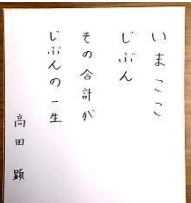 いまここ
じぶん
その合計が
じぶんの一生
高田 顕